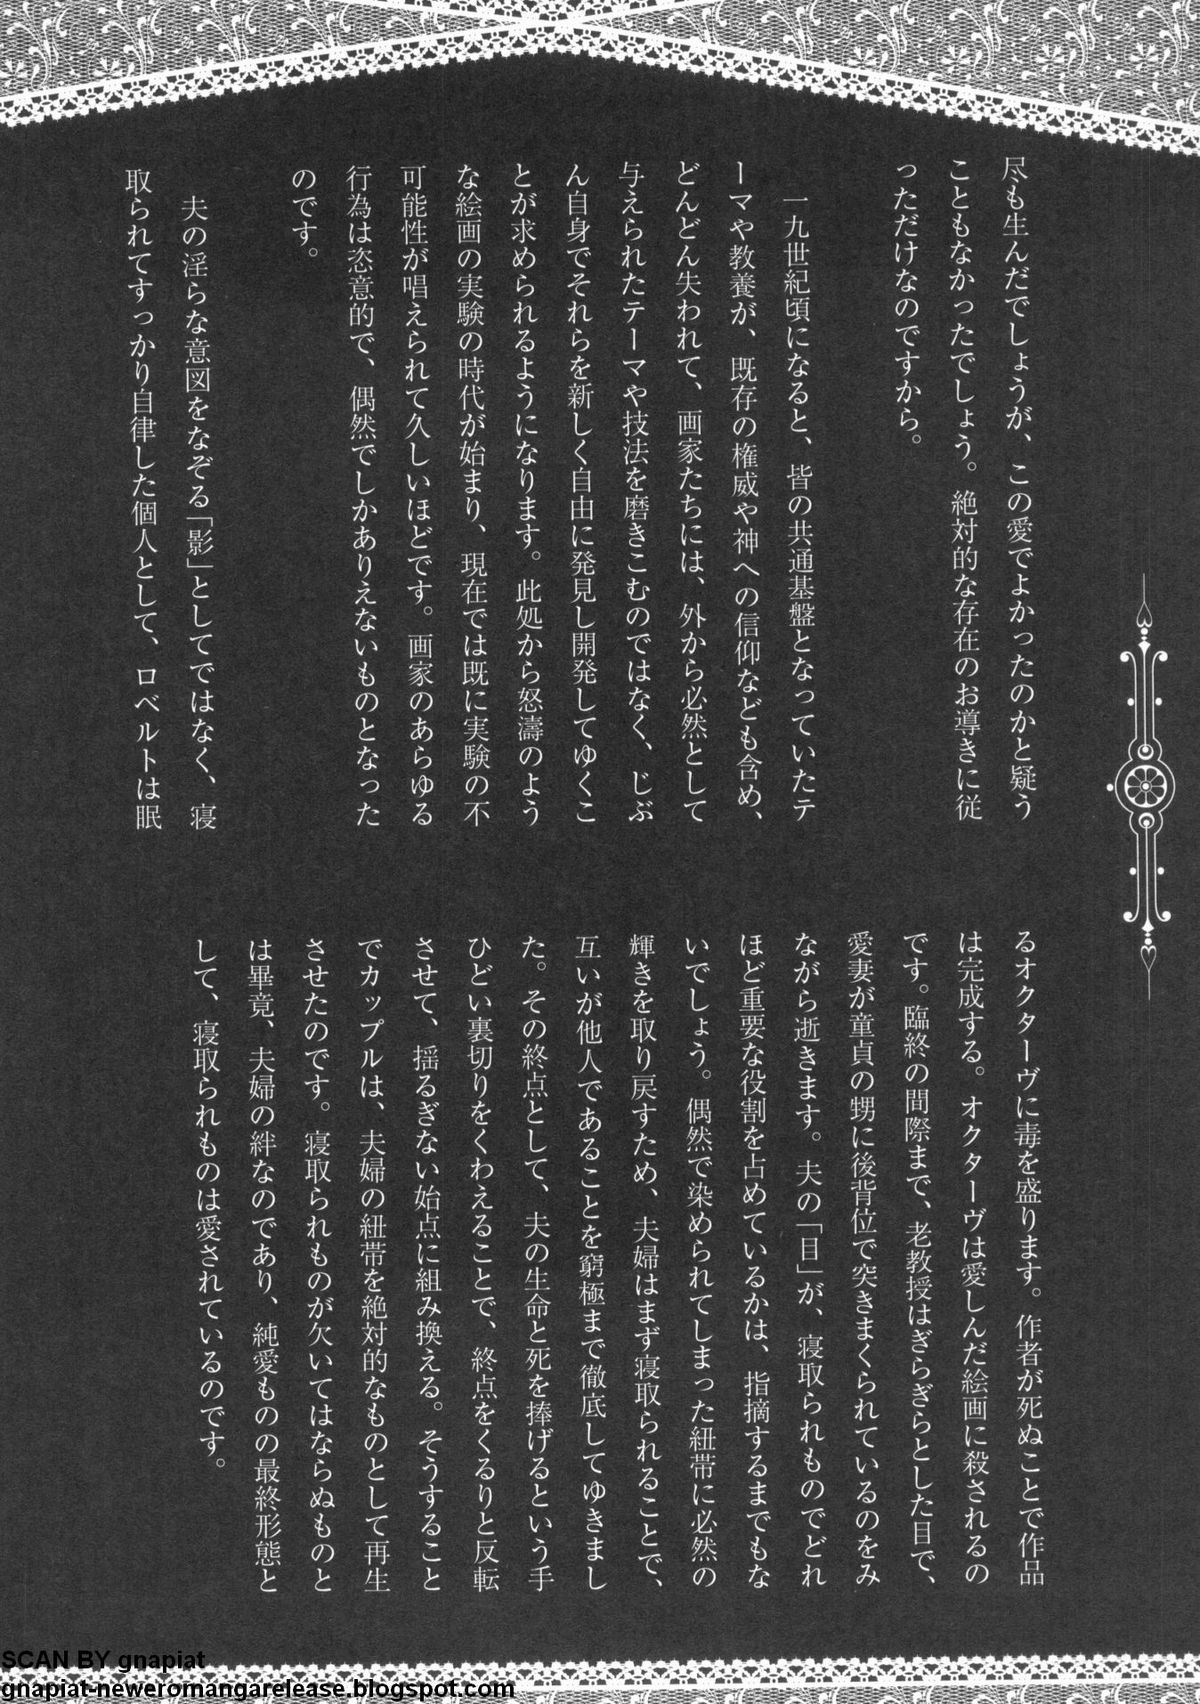 尽も生んだでしょうが、この愛でよかったのかと疑う
こともなかったでしょう。絶対的な存在のお導きに従
っただけなのですから。
一九世紀頃になると、皆の共通基盤となっていたテ
ーマや教養が、既存の権威や神への信仰なども含め、
どんどん失われて、画家たちには、外から必然として
与えられたテーマや技法を磨きこむのではなく、じぶ
ん自身でそれらを新しく自由に発見し開発してゆくこ
とが求められるようになります。此処から怒濤のよう
な絵画の実験の時代が始まり、現在では既に実験の不
可能性が唱えられて久しいほどです。画家のあらゆる
行為は恣意的で、偶然でしかありえないものとなった
のです。
夫の淫らな意図をなぞる「影」としてではなく、寝
取られてすっかり自律した個人として、ロベルトは眠
るオクターヴに毒を盛ります。作者が死ぬことで作品
は完成する。オクターヴは愛しんだ絵画に殺されるの
です。臨終の間際まで、老教授はぎらぎらとした目で、
愛妻が童貞の甥に後背位で突きまくられているのをみ
ながら逝きます。夫の「目」が、寝取られものでどれ
ほど重要な役割を占めているかは、指摘するまでもな
いでしょう。偶然で染められてしまった紐帯に必然の
輝きを取り戻すため、夫婦はまず寝取られることで、
互いが他人であることを窮極まで徹底してゆきまし
た。その終点として、夫の生命と死を捧げるという手
ひどい裏切りをくわえることで、終点をくるりと反転
させて、揺るぎない始点に組み換える。そうすること
でカップルは、夫婦の紐帯を絶対的なものとして再生
させたのです。寝取られものが欠いてはならぬものと
は畢竟、夫婦の絆なのであり、純愛ものの最終形態と
して、寝取られものは愛されているのです。
SCAN BY gnapiat
gnapiat-neweromangarelease.blogspot.com